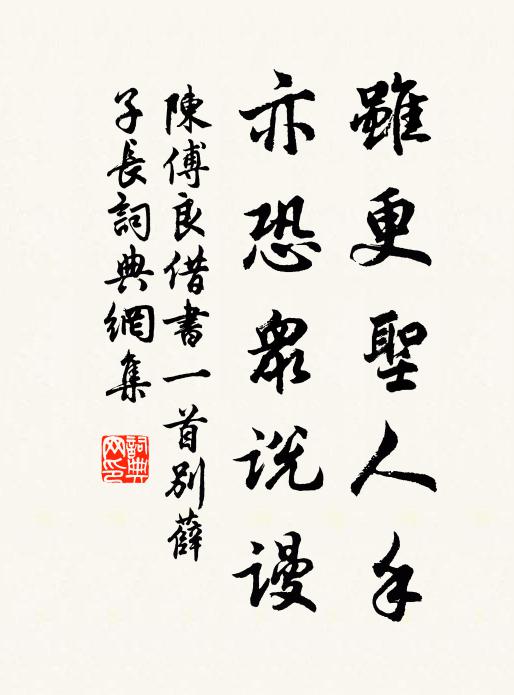 雖更聖人手
亦恐衆説謾
陳傅良借書一首別薛
子長詞典網集
詞典
网印